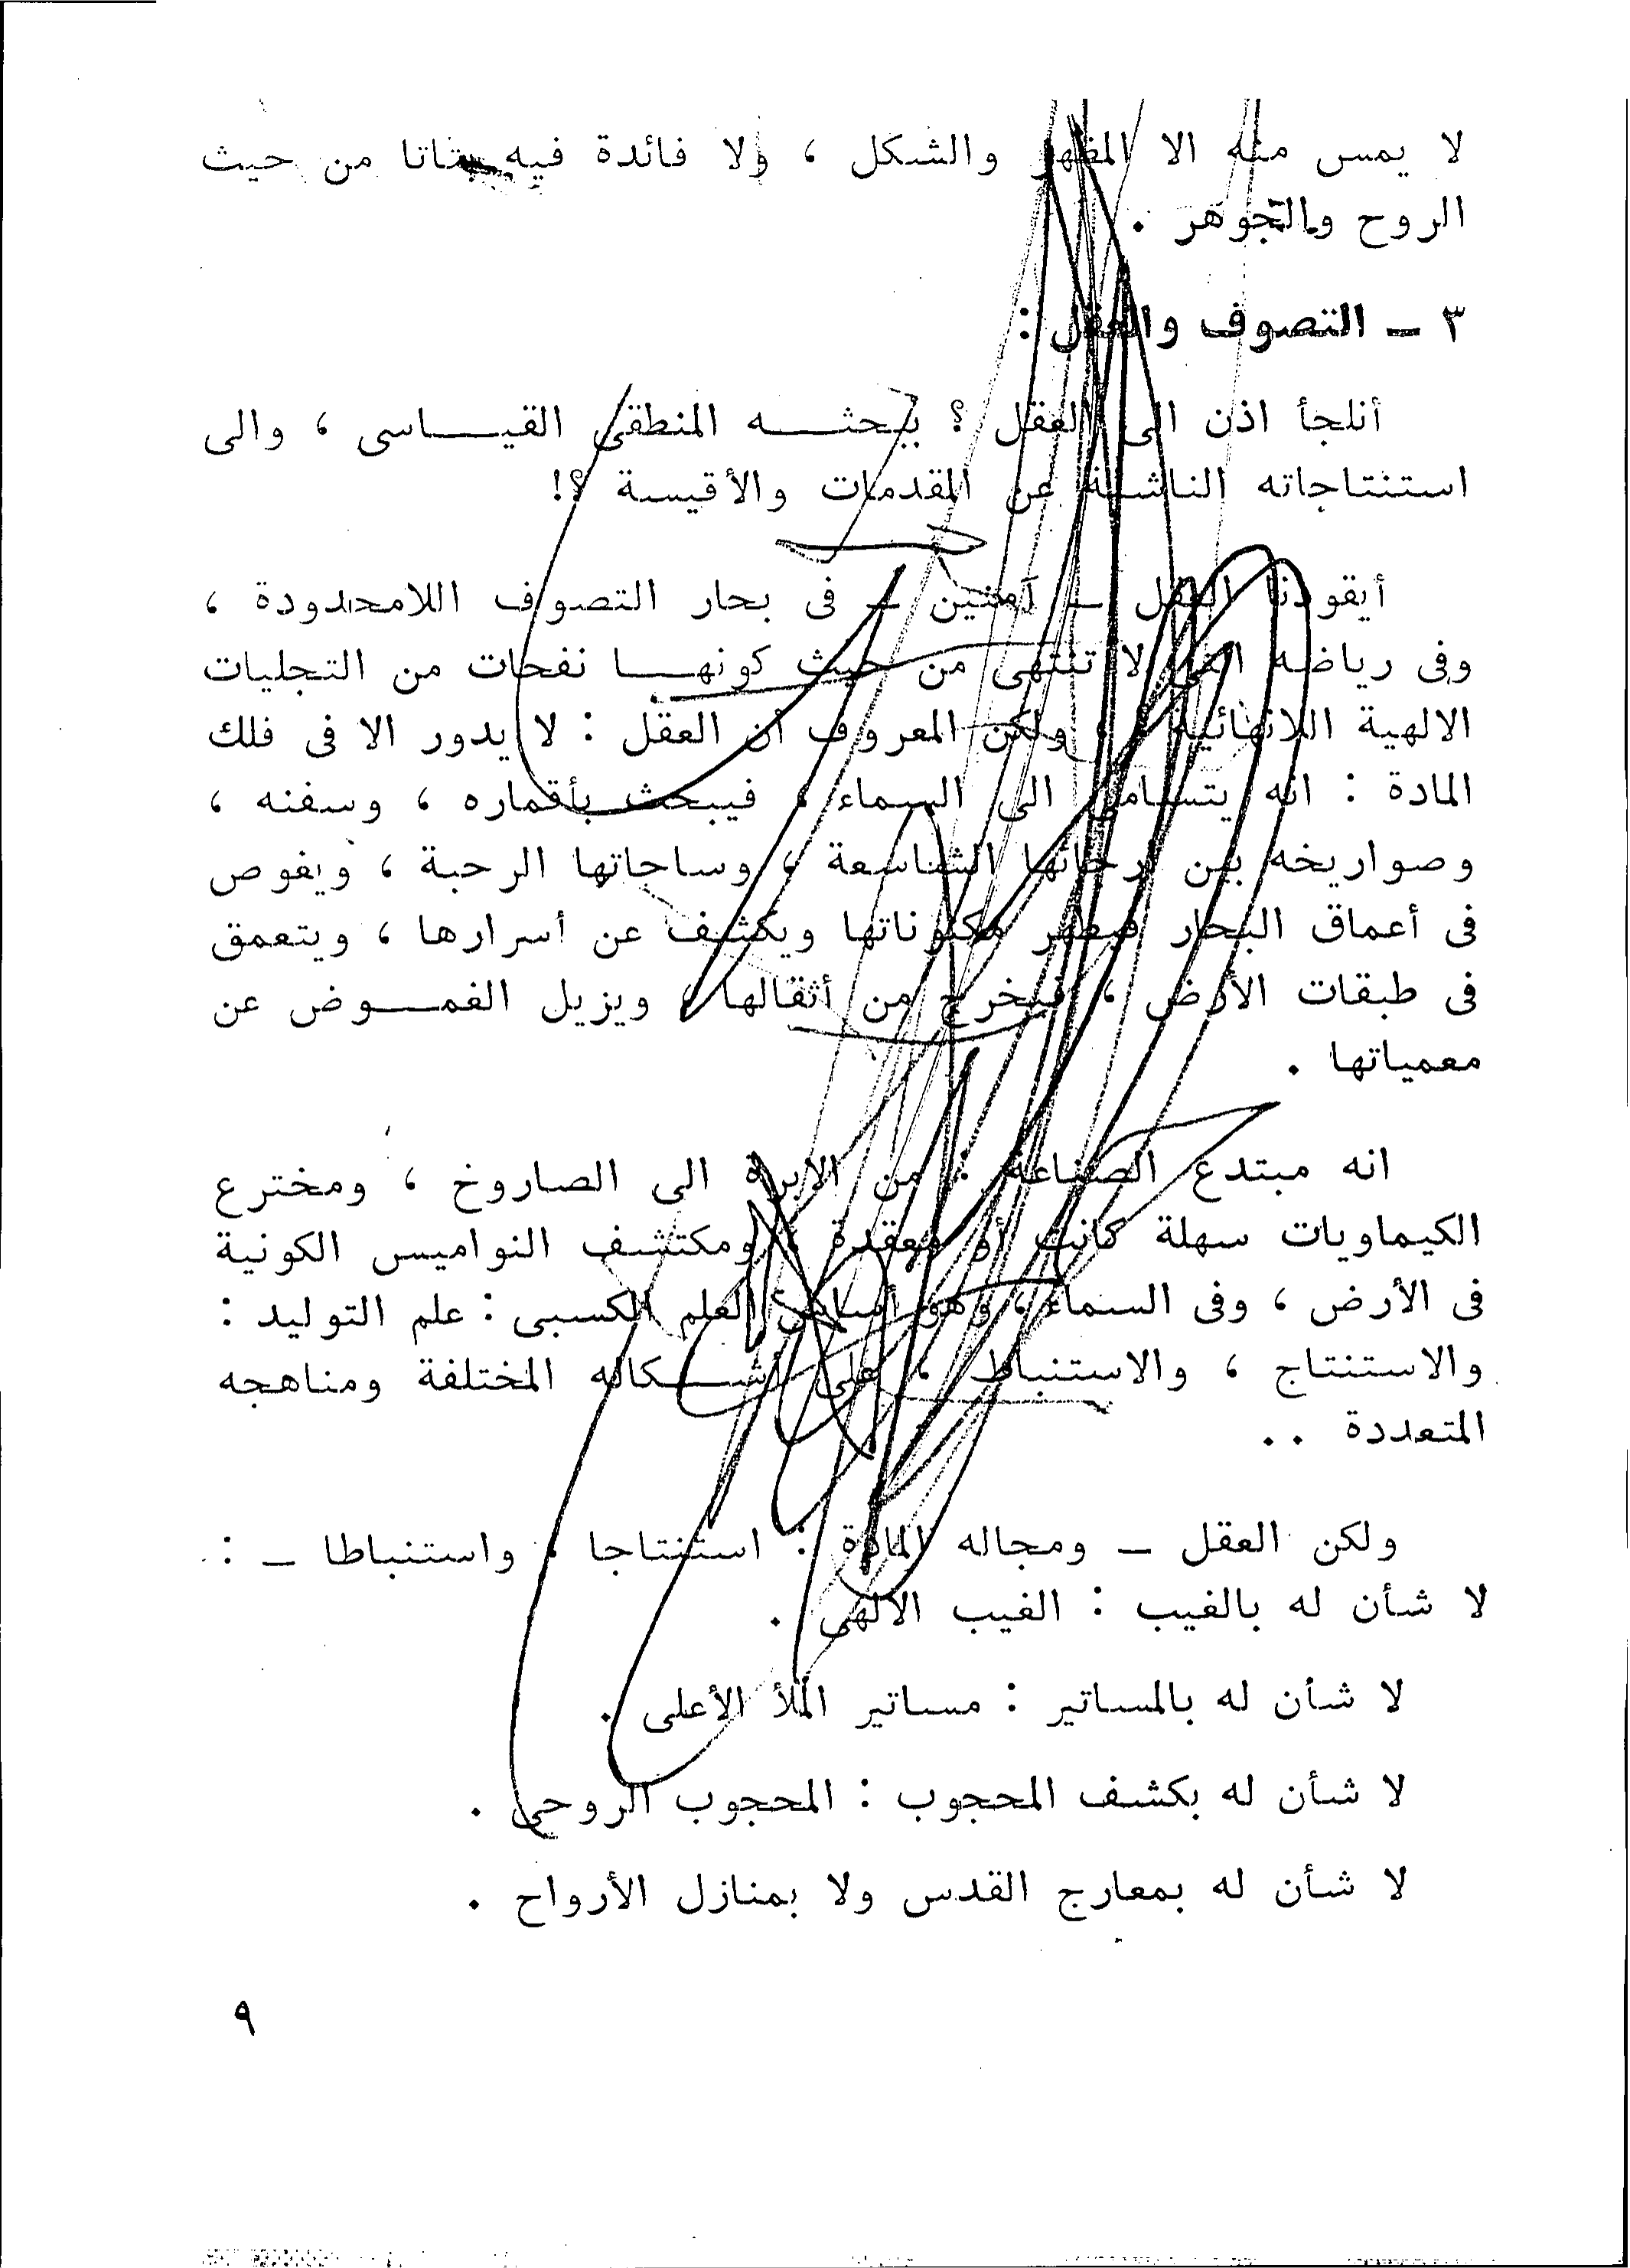 لا يمس منه الا المظهر والشكل ، ولا فائدة فيه بتاتا من حيث
الروح والجوهر .
٣ ــ التصوف والعقل :
أنلجأ اذن الى العقل ؟ ببحثــه المنطقى القيــاسى ، والى
استنتاجاته الناشئة عن المقدمات والأقيسة ؟!
أيقودنا العقل ــ آمنين ــ فى بحار التصوف اللامحدودة ،
وفى رياضه التى لا تنتهى من حيث كونهــا نفحات من التجليات
الالهية اللانهائية ؟ ولكن المعروف أن العقل : لا يدور الا فى فلك
المادة : انه يتسامى الى السماء ، فيبحث بأقماره ، وسفنه ،
وصواريخه بين أرجائها الشاسعة ، وساحاتها الرحبة ، ويغوص
فى أعماق البحار فيظهر مكنوناتها ويكشف عن أسرارها ، ويتعمق
فى طبقات الأرض ، فيخرج من أثقالها ، ويزيل الغمــوض عن
معمياتها .
انه مبتدع الصناعة : من الابرة الى الصاروخ ، ومخترع
الكيماويات سهلة كانت أو معقدة ، ومكتشف النواميس الكونية
فى الأرض ، وفى السماء ، وهو أساس العلم الكسبى : علم التوليد :
والاستنتاج ، والاستنباط ، على أشــكاله المختلفة ومناهجه
المتعددة ..
ولكن العقل ــ ومجاله المادة : استنتاجا ، واستنباطا ــ :
لا شأن له بالغيب : الغيب الالهى .
لا شأن له بالمساتير : مساتير الملأ الأعلى .
لا شأن له بكشف المحجوب : المحجوب الروحى .
لا شأن له بمعارج القدس ولا بمنازل الأرواح .
٩